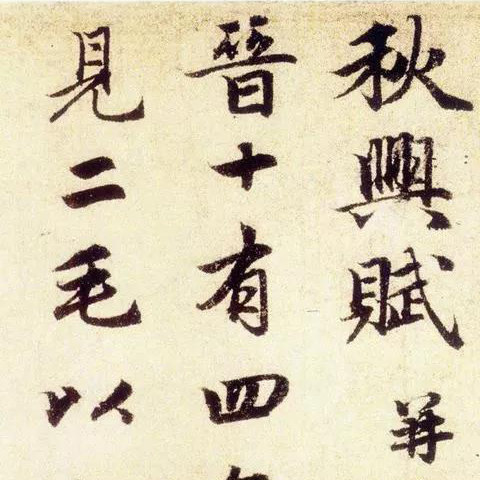 秋興賦并
晉十有四
見二毛以